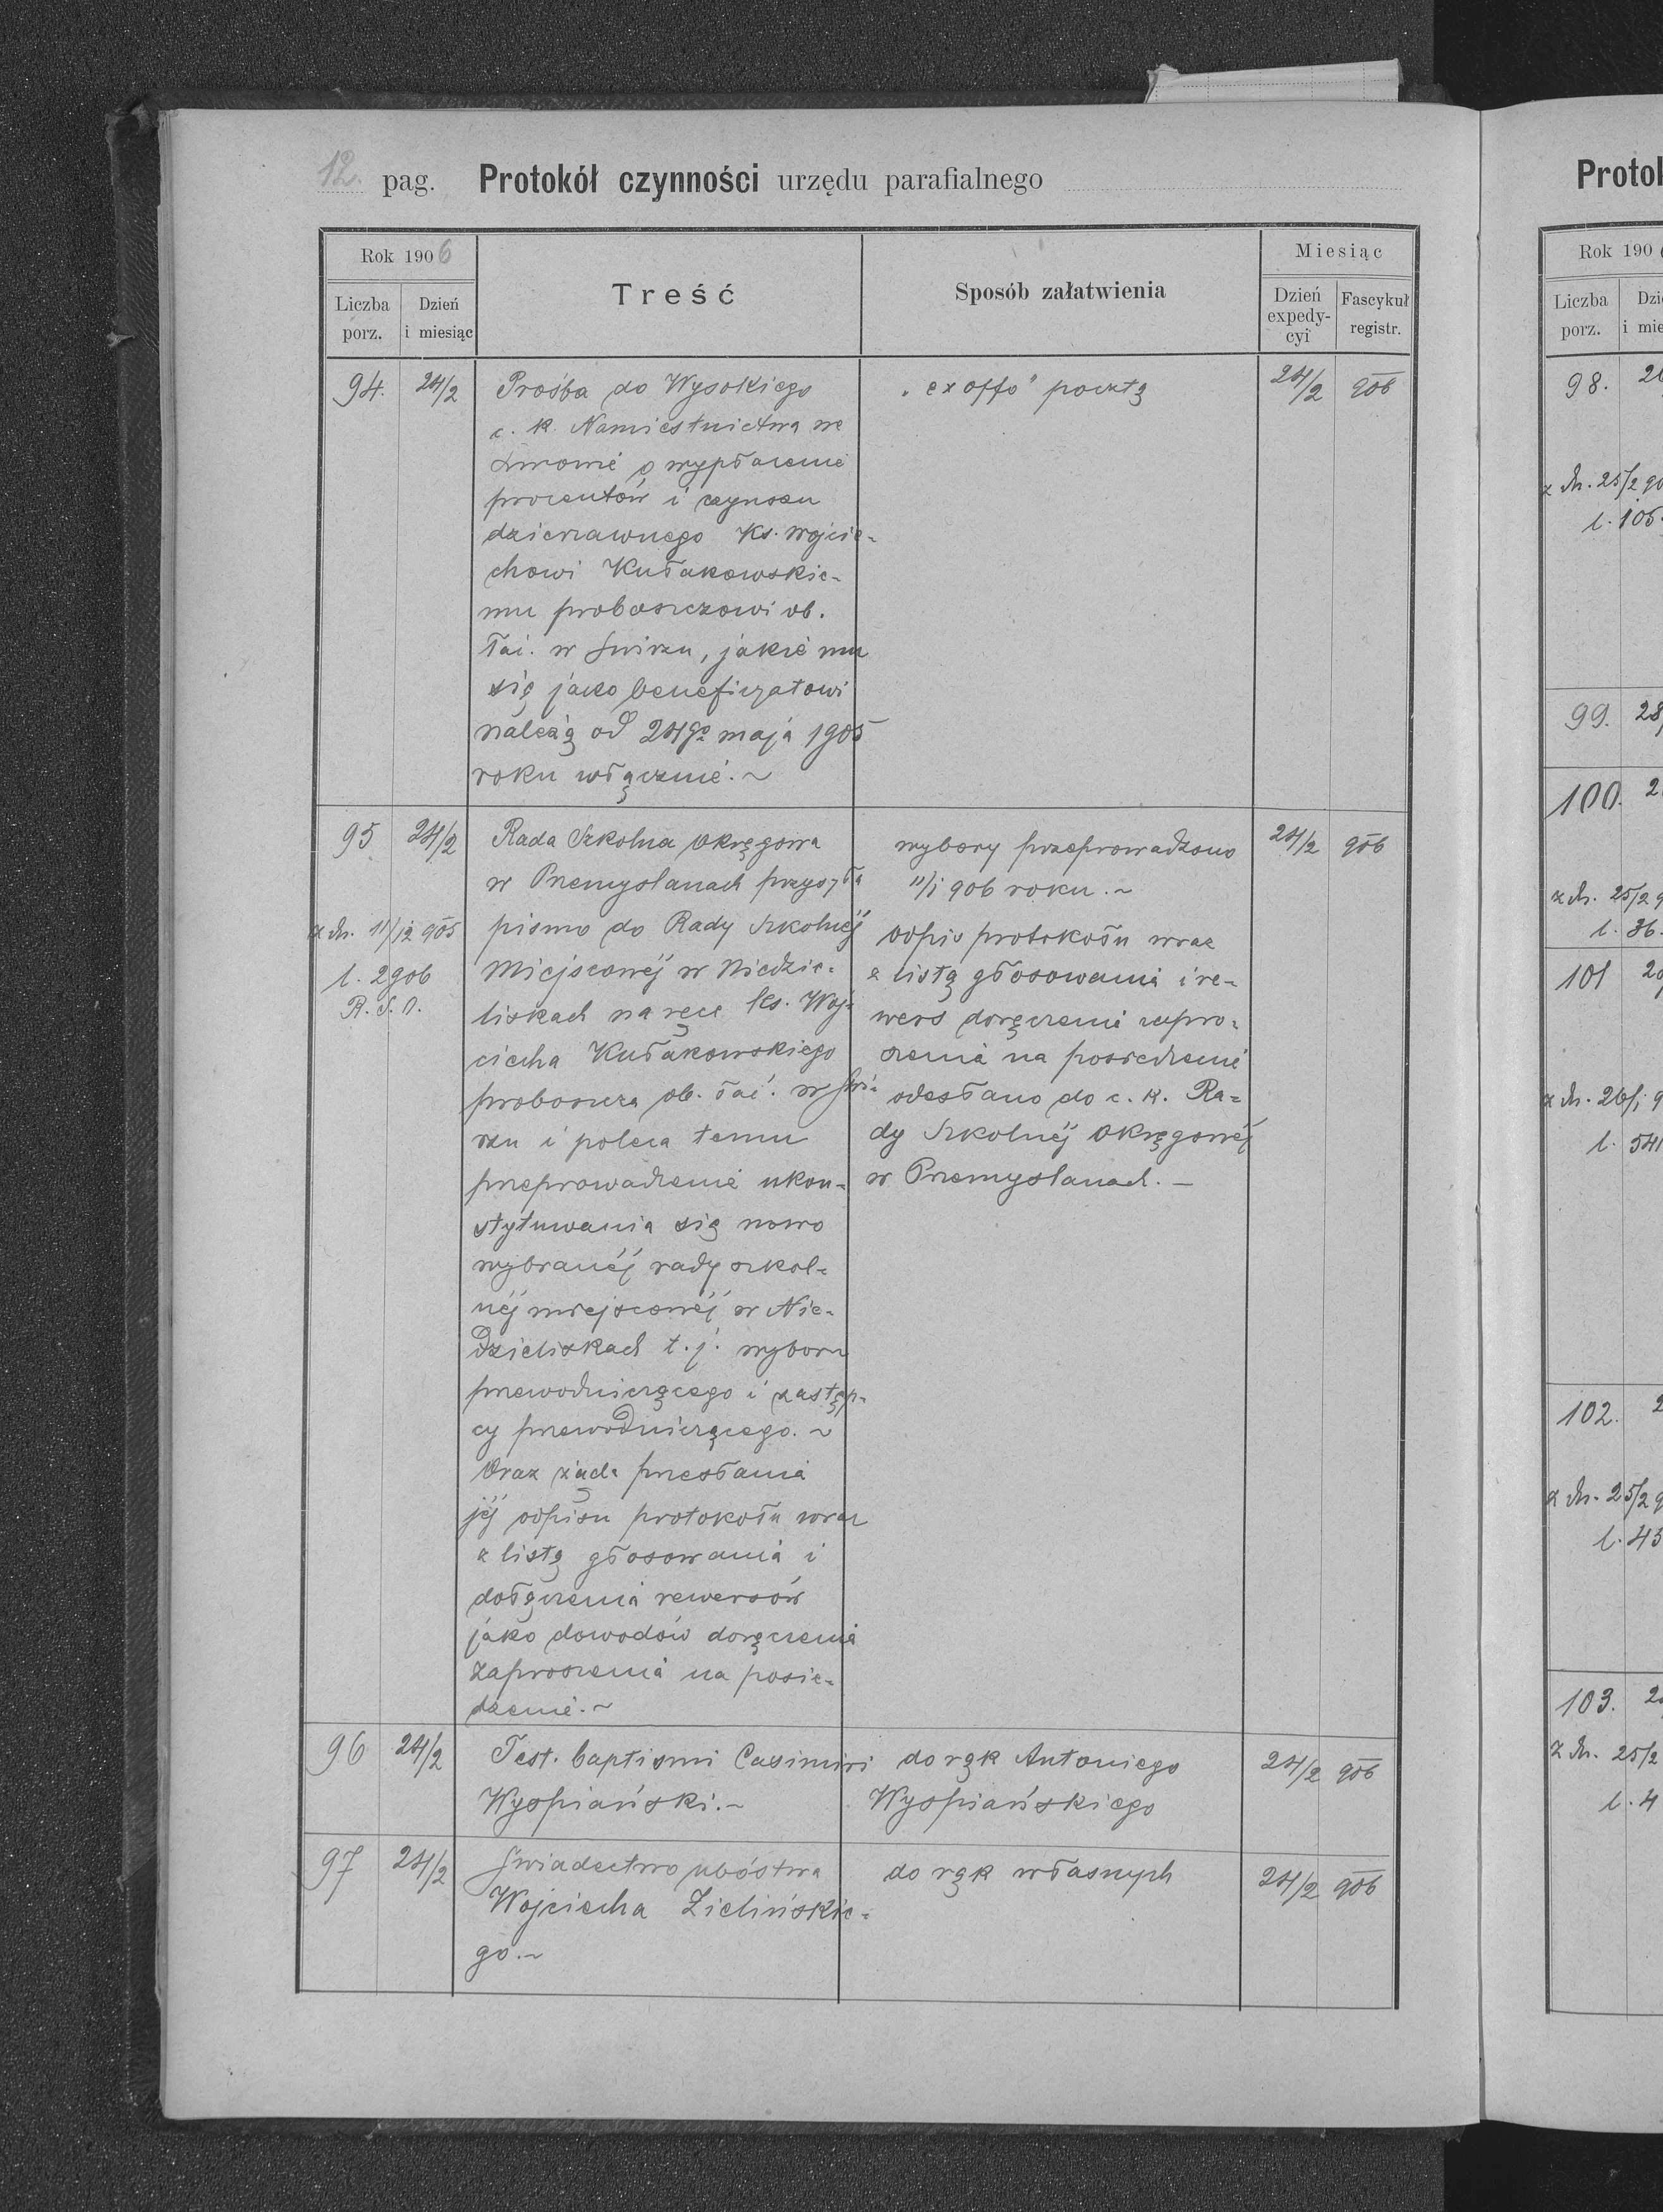 12. pag. Protokół czynności urzędu parafialnego
Rok 1906
Liczba porz.
Dzień i miesiąc
Treść
Sposób załatwienia
Miesiąc
Dzień expedy-cyi
Fascykuł registr.
94. 24/2
Prośba do Wysokiego
c. k. Namiestnictwa we
Lwowie o wypłacenie
procentów i czynszu
dzierzawnego Ks. Wojcie-
chowi Kułakowskie-
mu proboszczowi ob.
łać. w Świrzu, jakie mu
się jako beneficyatowi
należą od 24go maja 1905
roku włącznie.~
"ex offo" pocztą
24/2 906
95 24/2
z dn. 11/12 905
l. 2906
R. S. O.
Rada Szkolna Okręgowa
w Przemyślanach przysyła
pismo do Rady Szkolnéj
Miejscowéj w Niedzie-
liskach na ręce ks. Woj-
ciecha Kułakowskiego
proboszcza ob. łać. w Świ-
rzu i poleca temu
przeprowadzenie ukon-
stytuwania się nowo
wybranéj rady szkol-
néj miejscowéj w Nie-
dzieliskach t. j. wyboru
przewodniczącego i zastęp-
cy przewodniczącego.~
Oraz żąda przesłania
jéj odpisu protokołu wraz
z listą głosowania i
dołączenia rewersów
jako dowodów doręczenia
zaproszenia na posie-
dzenie.~
wybory przeprowadzono
11/1 906 roku.~
odpis protokołu wraz
z listą głosowania i re-
wers doręczenia zapro-
szenia na posiedzenie
odesłano do c. k. Ra-
dy Szkolnéj Okręgowéj
w Przemyślanach.—
24/2 906
96 24/2
Test. baptismi Casimiri
Wyspiański.~
do rąk Antoniego
Wyspiańskiego
24/2 906
97 24/2
Świadectwo ubóstwa
Wojciecha Zielińskie-
go.~
do rąk własnych
24/2 906
Protok
Rok 190
Liczba porz.
98.
z dn. 25/2 90
l. 106.
99. 28/
100. 2
z dn. 25/2 9
l. 36.
101
z dn. 26/1 9
l. 541
102.
z dn. 25/2 9
l. 43
103.
z dn. 25/2
l. 4